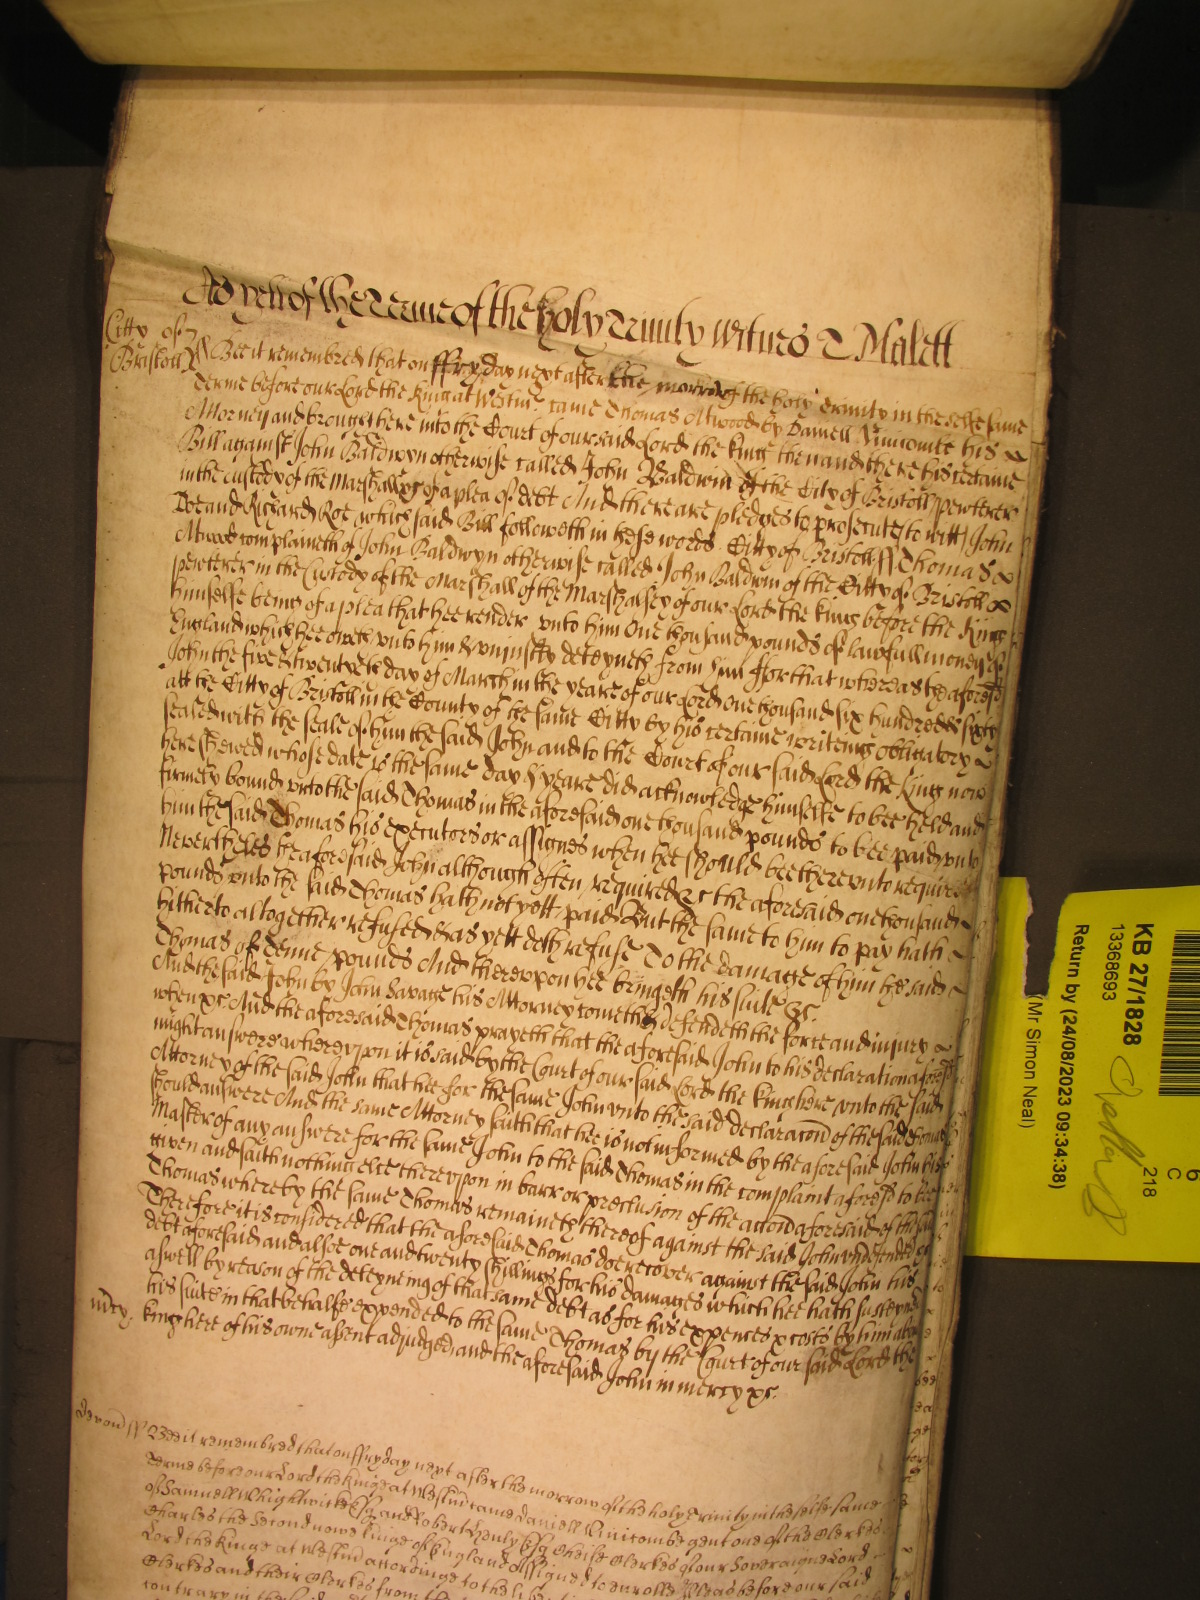 As yett of the Terme of the holy Trinity Witnes T Malett
Citty of
Bristoll
ss Bee it remembred that on ffryday next after the morrow of the holy Trinity in the selfe same
Terme before our Lord the King at Westmr. came Thomas Atwood by Daniell Vinicombe his
Attorney and brought here into the Court of our said Lord the King then and there his certaine
Bill against John Baldwyn otherwise called John Baldwin of the City of Bristoll pewterer
in the custody of the Marshall &c of a plea of debt And there are pledges to prosecute to witt John
Doe and Richard Roe which said Bill followeth in these words Citty of Bristoll ss Thomas
Atwood complaineth of John Baldwyn otherwise called John Baldwin of the Citty of Bristoll
pewterer in the Custody of the Marshall of the Marshalsey of our Lord the King before the King
himselfe being of a plea that hee render vnto him One thousand pounds of lawfull money of
England which hee oweth vnto him & vniustly deteyneth from him ffor that whereas the aforesd
John the five & twentyeth day of March in the yeare of our Lord one thousand six hundred & sixty
att the Citty of Bristoll in the County of the same Citty by his certaine writeing obligatory
sealed with the seale of him the said John and to the Court of our said Lord the King now
here shewed whose date is the same day & yeare did acknowledge himselfe to bee held and
firmely bound vnto the said Thomas in the aforesaid one thousand pounds to bee paid vnto
him the said Thomas his executors or assignes when hee should bee therevnto required
Neverthelesse the aforesaid John although often required &c the aforesaid one thousand
pounds vnto the said Thomas hath not yett paid But the same to him to pay hath
hitherto altogether refused & as yett doth refuse To the damage of him the said
Thomas of Tenne pounds And therevpon hee bringeth his suite &c.
And the said John by John Savage his Attorney cometh & defendeth the force and iniury
when &c And the aforesaid Thomas prayeth that the aforesaid John to his declaration aforesd
might answere wherevpon it is said by the Court of our said Lord the King here vnto the said
Attorney of the said John that hee for the same John vnto the said declaracon of the said Thomas
should answere And the same Attorney saith that hee is not informed by the aforesaid John his
Master of any answere for the same John to the said Thomas in the complaint aforesd to bee
given and saith nothing else therevpon in barr or preclusion of the accon aforesaid of the said
Thomas whereby the same Thomas remaineth thereof against the said John vndefended &c
Therefore it is considered that the aforesaid Thomas doe recover against the said John his
debt aforesaid and alsoe one and twenty shillings for his damages which hee hath susteyned
aswell by reason of the deteyneing of that same debt as for his expences & costs by him about
his suite in that behalfe expended to the same Thomas by the Court of our said Lord the
mercy. King here of his owne assent adjudged, and the aforesaid John in mercy &c.
Devon ss Bee it remembred that on ffryday next after the morrow of the holy Trinity in the selfe same
Terme before our Lord the Kinge at Westmr came Daniell Vinicombe gent one of the Clerkes
of Samuell Whightwicke Esq and Robert Henly Esq Cheife Clerkes of our Soveraigne Lord
Charles the Second nowe Kinge of England Assigned to enrolle Pleas before our said
Lord the Kinge at Westmr accordinge to the
Clerkes and their Clerkes from the
contrary in the
KB 27/1828
13368693
Return by (24/08/2023 09:34:38)
(Mr Simon Neal)
218
C
6